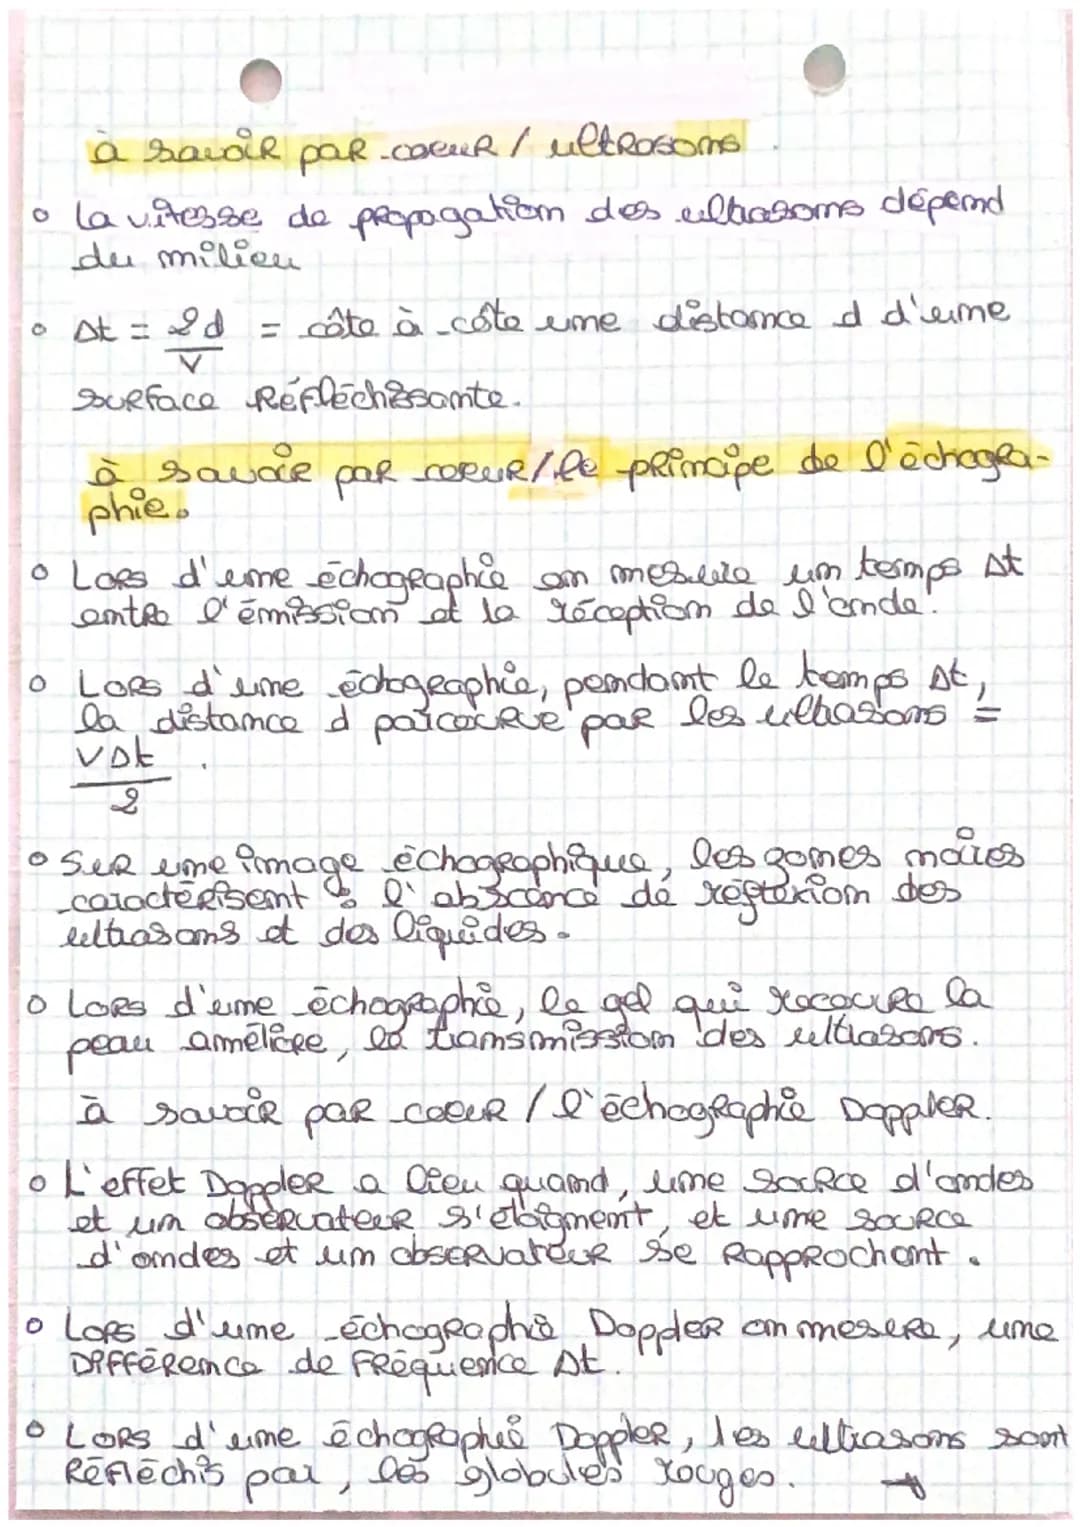 à savoir par coeur / ultrasons
o la vitesse de propagation des ultrasons dépend
du milieu
o Δt = 2d/V = côte à côte une distance d d'une
surface Réfléchissante.
à savoir par coeur / le principe de l'échogra-
phie.
o Lors d'une échographie on mesure un temps Δt
entre l'émission et la réception de l'onde.
o Lors d'une échographie, pendant le temps Δt,
la distance d parcourue par les ultrasons =
VΔt/2.
o Sur une image échographique, les zones noires
caractérisent : l'abscence de réflexion des
ultrasons et des liquides.
o Lors d'une échographie, le gel qui recouvre la
peau améliore, la transmission des ultrasons.
à savoir par coeur / l'échographie Doppler.
o L'effet Doppler a lieu quand, une source d'ondes
et un observateur s'éloignent, et une source
d'ondes et un observateur se Rapprochent.
o Lors d'une échographie Doppler on mesure, une
Différence de Fréquence Δt.
o Lors d'une échographie Doppler, les ultrasons sont
Réfléchis par, les globules rouges. →